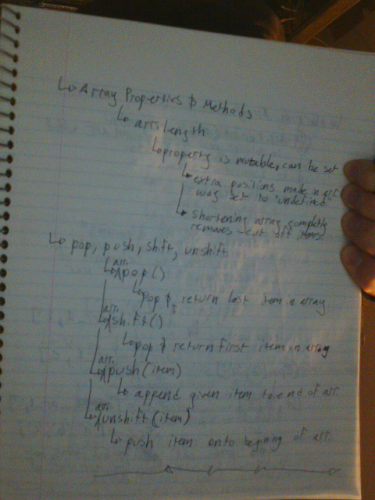 Array Properties & Methods
arr.length
property is mutable, can be set
extra positions made in
way set to 'undefined'
shortening array completely
removes cut off items
pop, push, shift, unshift
arr.pop()
pop & return last item in array
arr.shift()
pop & return first item in array
arr.push(item)
append given item to end of arr.
arr.unshift(item)
push item onto beginning of arr.